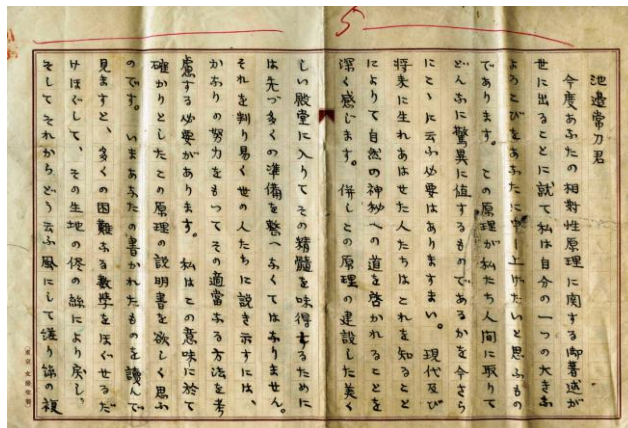 5
池邊常刀君
今度あなたの相對性原理に関する御著述が
世に出ることに就て私は自分の一つの大きな
よろこびをあなたに申し上げたいと思ふもの
であります。この原理が私たち人間に取りて
どんなに驚異に値するものであるかを今さら
にこゝに云ふ必要はありますまい。現代及び
将来に生れあはせた人たちはこれを知ること
によりて自然の神秘への道を啓かれることを
深く感じます。併しこの原理の建設した美く
しい殿堂に入りてその精髓を味得するために
は先づ多くの準備を整へなくてはなりません。
それを判り易く世の人たちに説き示すには、
かなりの努力をもってその適當な方法を考
慮する必要があります。私はこの意味に於て
確かりとしたこの原理の説明書を欲しく思ふ
のです。いまあなたの書かれたものを讀んで
見ますと、多くの困難な数学をほぐせるだ
けほぐして、その生地の侭の絲により戻し、
そしてそれからどう云ふ風にして縒り絲の複
(東京 文房堂製)